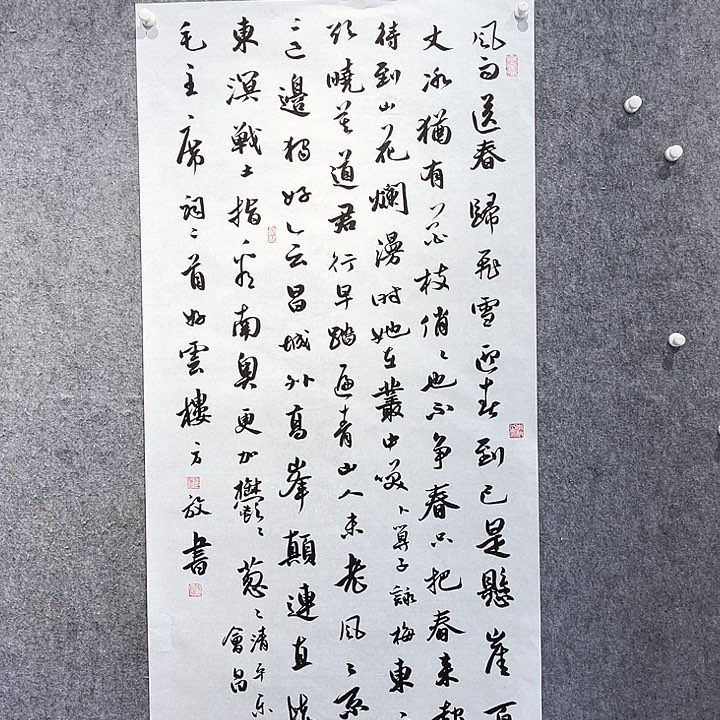 風雨送春歸飛雪迎春到已是懸崖百
丈冰猶有花枝俏〻也不争春只把春來報
待到山花爛漫時她在叢中笑卜算子詠梅東〻
欲曉莫道君行早踏遍青山人未老風〻景
〻這邊獨好会昌城外高峰顛連直接
東溟戰士指看南奥更加鬱〻葱〻清平乐
會昌
毛主席詞二首雲樓方放書